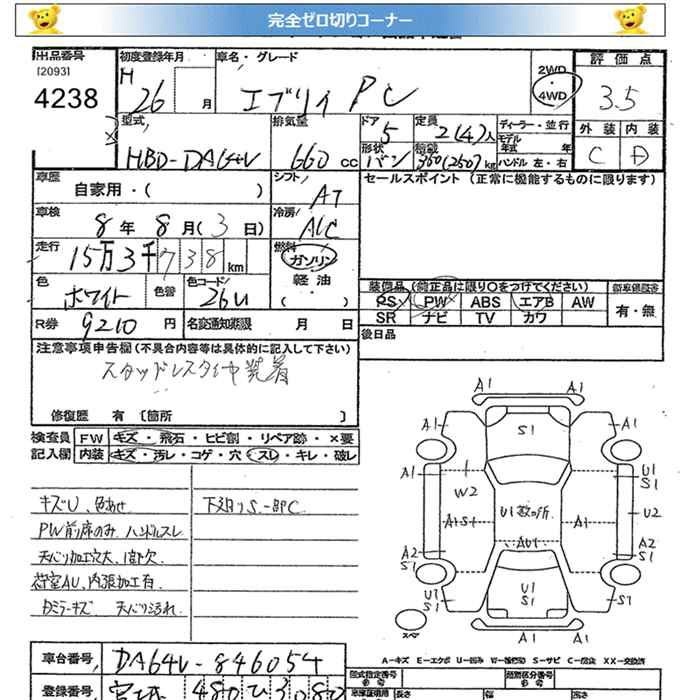 完全ゼロ切りコーナー
出品番号
[2093]
4238
初度登録年月
H 26 月
車名・グレード
エブリイ PC
2WD
・
4WD
評価点
3.5
外装 内装
C D
型式
HBD-DA64V
排気量
660 cc
ドア
5
形状
バン
定員
2(4)人
積載
350(250)kg
ディーラー・並行
モデル年式 年
ハンドル 左・右
車歴
自家用・( )
シフト
AT
車検
8年 8月(3日)
冷房
A/C
走行
15万3千738 km
燃料
ガソリン
軽油
( )
色
ホワイト
色替
色コード
26U
R券 9210 円
名変通知期限 月 日
セールスポイント (正常に機能するものに限ります)
装備品 (純正品に限り○をつけてください)
PS PW ABS エアB AW
SR ナビ TV カワ
有・無
後日品
注意事項申告欄(不具合内容等は具体的に記入して下さい)
スタッドレスタイヤ装着
修復歴 有 [箇所 ]
検査員 FW キズ・飛石・ヒビ割・リペア跡・×要
記入欄 内装 キズ・汚レ・コゲ・穴・スレ・キレ・破レ
キズU、色あせ
下廻りS.-BPC
PW前席のみ ハンドルスレ
天バリ加工穴大、間欠
荷室AU、内張加工有
天バリ汚れ
A1 A1
A1 S1 A1
A1 U1
S1
W2
U1数ヶ所 U2
A1S1 A1
AU1
A2 A2
S1 S1
U1 U1
S1 S1 S1
スペア
A1 A1
A-キズ E-エクボ U-凹み W-補修跡 S-サビ C-腐蝕 XX-交換済
車台番号 DA64V-846054
登録番号 宮城 480 ひ 3080
型式指定番号
類別区分番号
長さ 幅 高さ